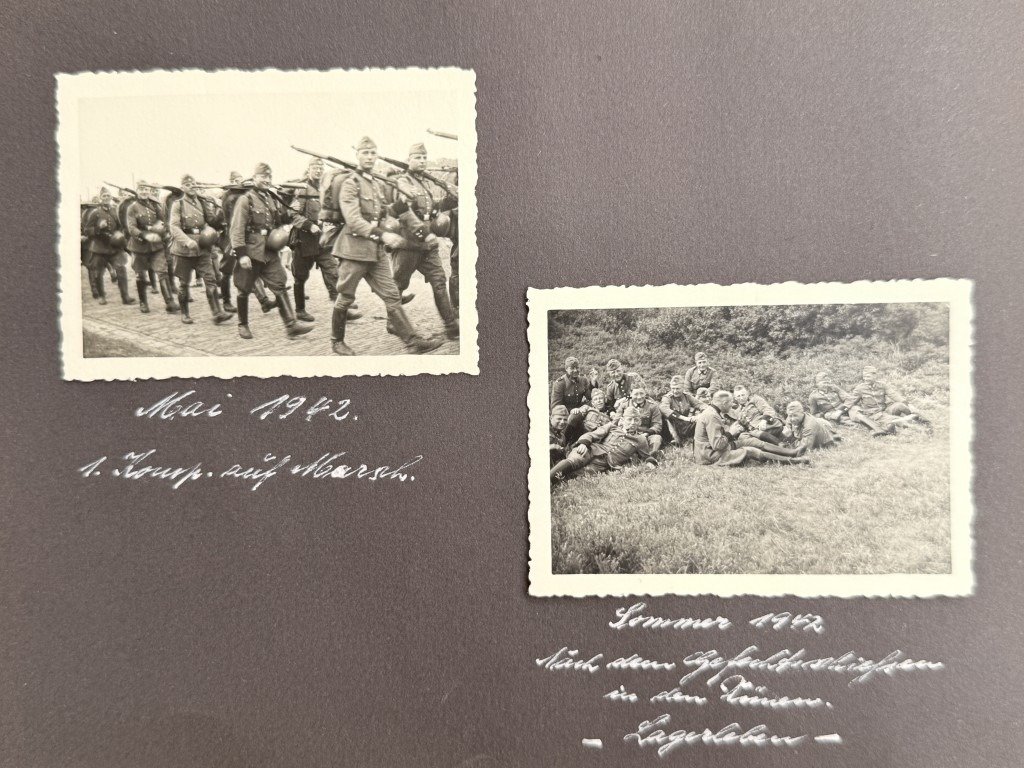 Mai 1942.
1. Komp. auf Marsch.
Sommer 1942
Nach dem Gefechtsschießen
in den Dünen.
- Lagerleben -